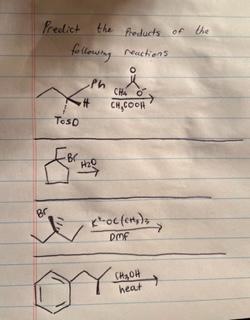 Predict the Products of the
following reactions
Ph
H
TosO
O
CH₃ O⁻
CH₃COOH
Br H₂O
Br
K⁺⁻OC(CH₃)₃
DMF
CH₃OH
heat